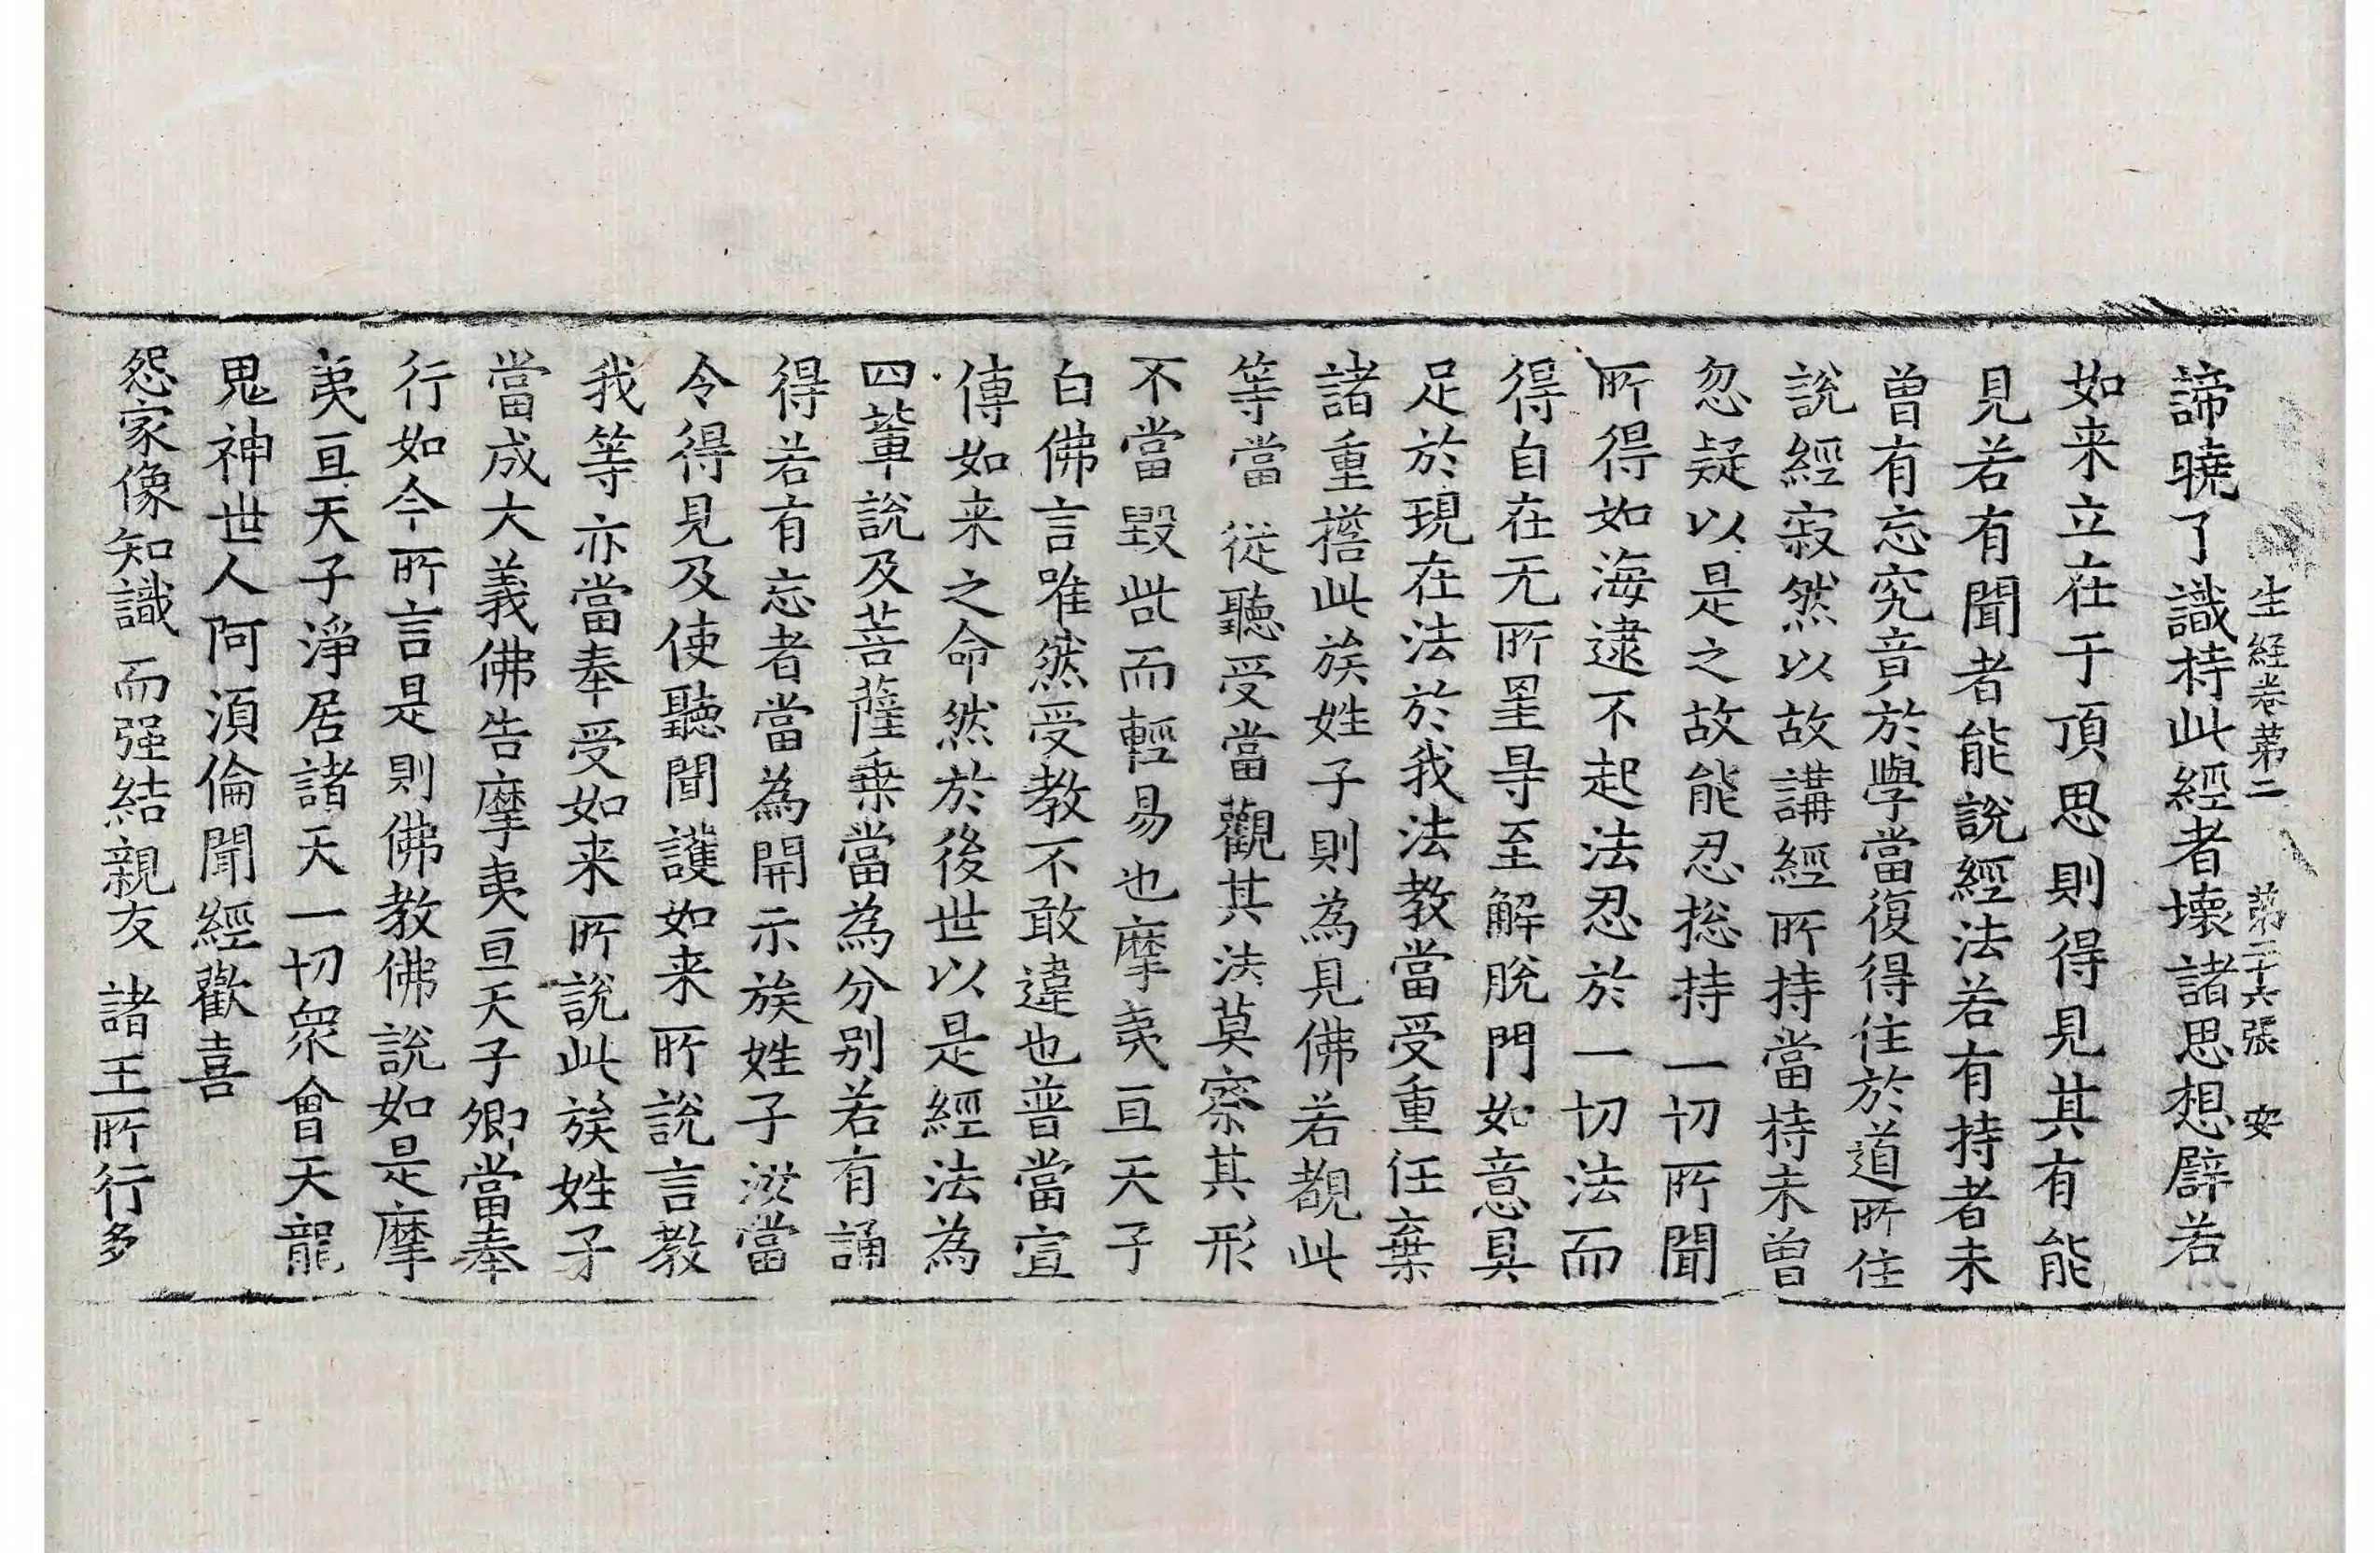 生經卷第二 第二十六張 安
諦曉了識持此經者壞諸思想辟若
如来立在于頂思則得見其有能
見若有聞者能說經法若有持者未
曽有忘究竟於學當復得住於道所住
說經寂然以故講經所持當持未曽
忽疑以是之故能忍揔持一切所聞
所得如海逮不起法忍於一切法而
得自在无所罣㝵至解脫門如意具
足於現在法於我法教當受重任棄
諸重擔此族姓子則為見佛若覩此
等當從聽受當觀其法莫察其形
不當毀呰而輕易也摩夷亘天子
白佛言唯然受教不敢違也普當宣
傳如来之命然於後世以是經法為
四輩說及菩薩乗當為分別若有誦
得若有忘者當為開示族姓子汝當
令得見及使聽聞護如来所說言教
我等亦當奉受如来所說此族姓子
當成大義佛告摩夷亘天子卿當奉
行如今所言是則佛教佛說如是摩
夷亘天子淨居諸天一切衆會天龍
鬼神世人阿湏倫聞經歡喜
怨家像知識而强結親友諸王所行多